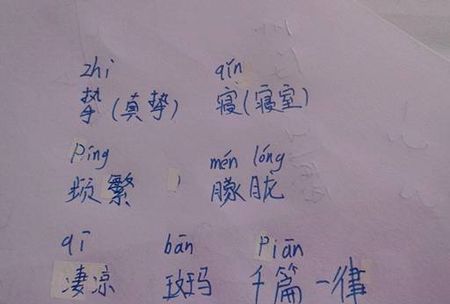 zhì qǐn
挚(真挚) 寝(寝室)
píng mén lóng
频繁 朦胧
qī bān piān
凄凉 斑玛 千篇一律